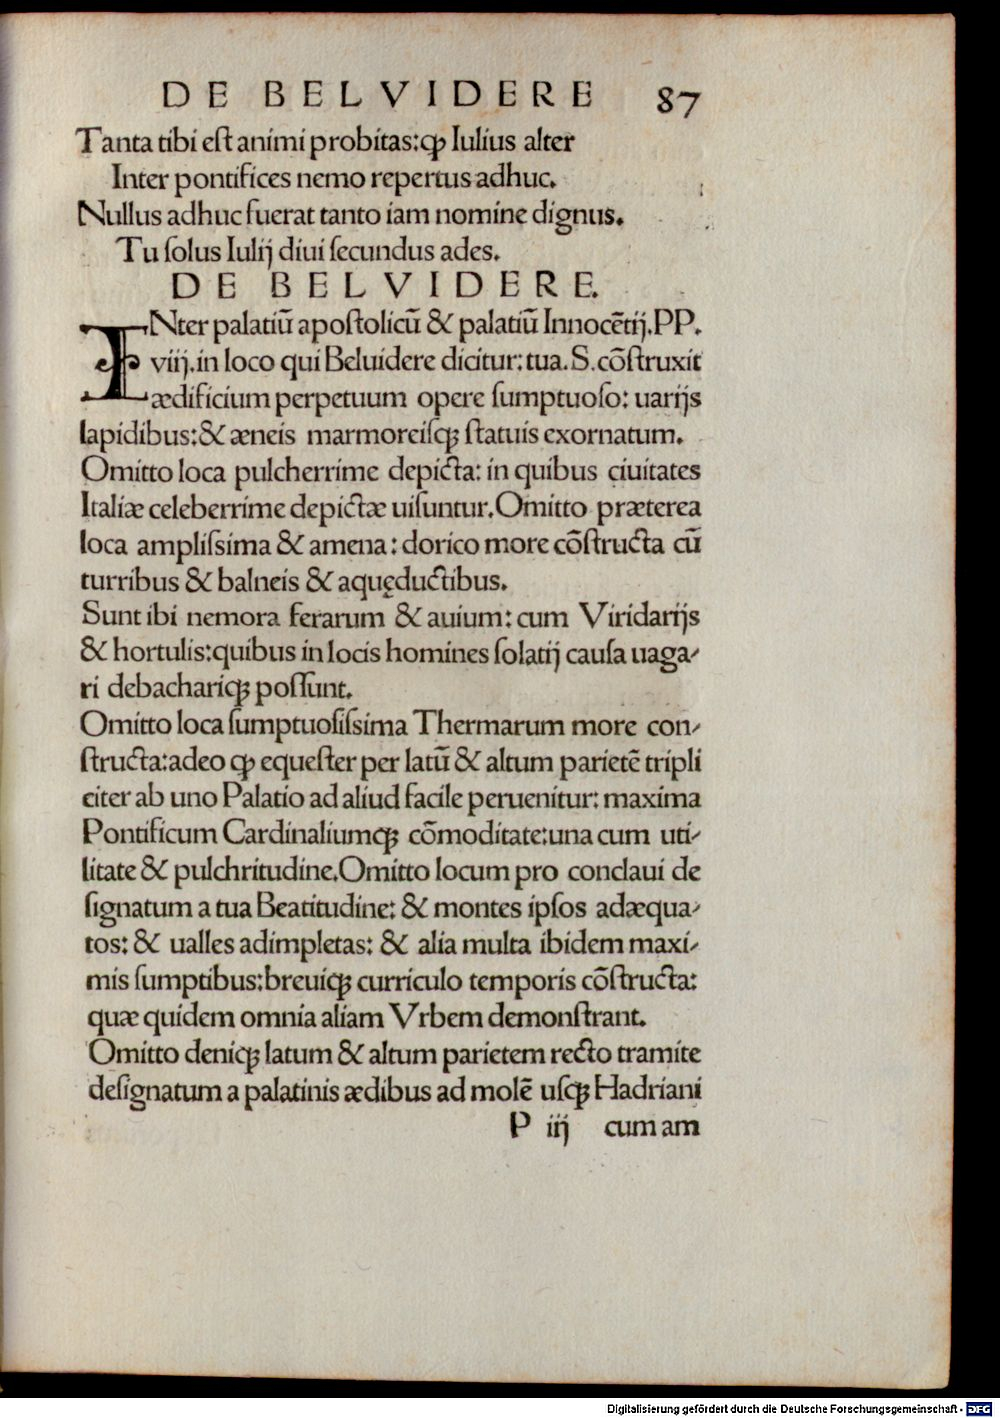 DE BELVIDERE 87
Tanta tibi eſt animi probitas:ꝙ Iulius alter
Inter pontifices nemo repertus adhuc.
Nullus adhuc fuerat tanto iam nomine dignus.
Tu ſolus Iulij diui ſecundus ades.
DE BELVIDERE.
INter palatiū apoſtolicū & palatiū Innocētij.PP.
viij.in loco qui Beluidere dicitur:tua.S.cōſtruxit
ædificium perpetuum opere ſumptuoſo: uarijs
lapidibus:& æneis marmoreiſqꝫ ſtatuis exornatum.
Omitto loca pulcherrime depicta: in quibus ciuitates
Italiæ celeberrime depictæ uiſuntur.Omitto præterea
loca ampliſsima & amena: dorico more cōſtructa cū
turribus & balneis & aquęductibus.
Sunt ibi nemora ferarum & auium: cum Viridarijs
& hortulis:quibus in locis homines ſolatij cauſa uaga-
ri debachariqꝫ poſſunt.
Omitto loca ſumptuoſiſsima Thermarum more con-
ſtructa:adeo ꝙ equeſter per latū & altum parietē tripli
citer ab uno Palatio ad aliud facile peruenitur: maxima
Pontificum Cardinaliumqꝫ cōmoditate:una cum uti-
litate & pulchritudine.Omitto locum pro conclaui de
ſignatum a tua Beatitudine: & montes ipſos adæqua-
tos: & ualles adimpletas: & alia multa ibidem maxi-
mis ſumptibus:breuiqꝫ curriculo temporis cōſtructa:
quæ quidem omnia aliam Vrbem demonſtrant.
Omitto deniqꝫ latum & altum parietem recto tramite
deſignatum a palatinis ædibus ad molē uſqꝫ Hadriani
P iij cum am
Digitalisierung gefördert durch die Deutsche Forschungsgemeinschaft - DFG